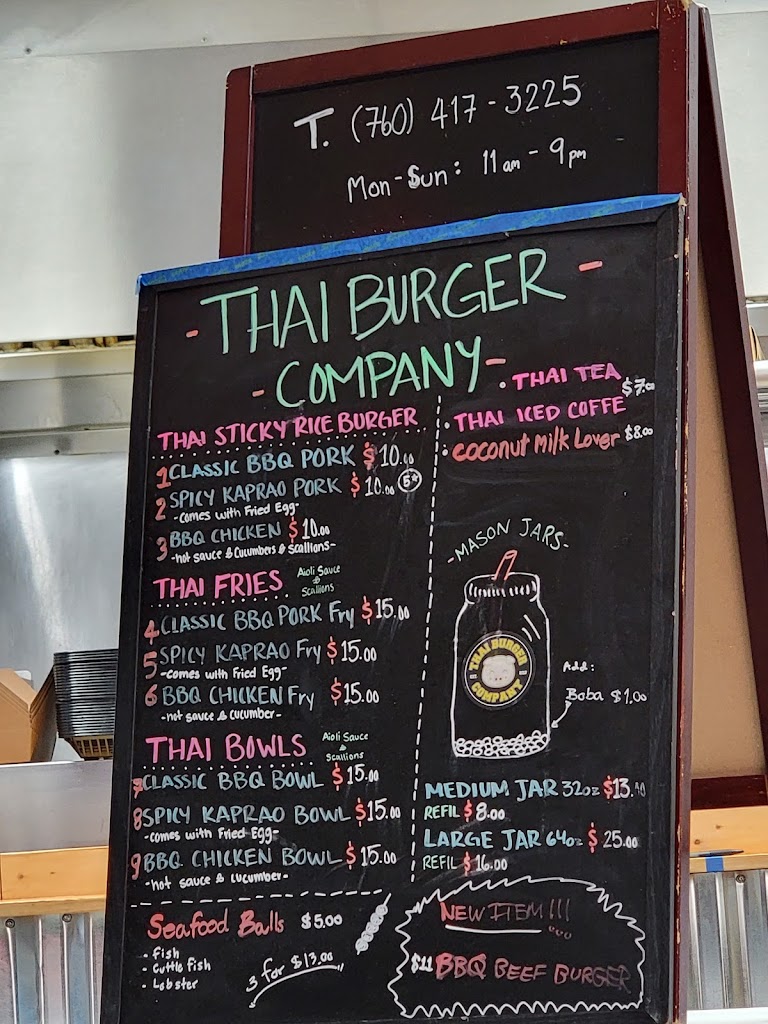 T. (760) 417-3225
Mon-Sun: 11am - 9pm
- THAI BURGER -
- COMPANY -
THAI STICKY RICE BURGER
1 CLASSIC BBQ PORK $10.00
2 SPICY KAPRAO PORK $10.00
-comes with Fried Egg-
3 BBQ CHICKEN $10.00
-hot sauce & Cucumbers & Scallions-
THAI FRIES
Aioli Sauce
&
Scallions
4 CLASSIC BBQ PORK Fry $15.00
5 SPICY KAPRAO Fry $15.00
-comes with Fried Egg-
6 BBQ CHICKEN Fry $15.00
-hot sauce & cucumber-
THAI BOWLS
Aioli Sauce
&
Scallions
7 CLASSIC BBQ BOWL $15.00
8 SPICY KAPRAO BOWL $15.00
-comes with Fried Egg-
9 BBQ CHICKEN BOWL $15.00
-hot sauce & cucumber-
Seafood Balls $5.00
- Fish
- Cuttle fish
- Lobster
3 for $13.00
• THAI TEA $7.00
• THAI ICED COFFE
• coconut milk Lover $8.00
-MASON JARS-
THAI BURGER
COMPANY
Add:
Boba $1.00
MEDIUM JAR 32oz $13.00
REFIL $8.00
LARGE JAR 64oz $25.00
REFIL $16.00
NEW ITEM!!!
$11 BBQ BEEF BURGER